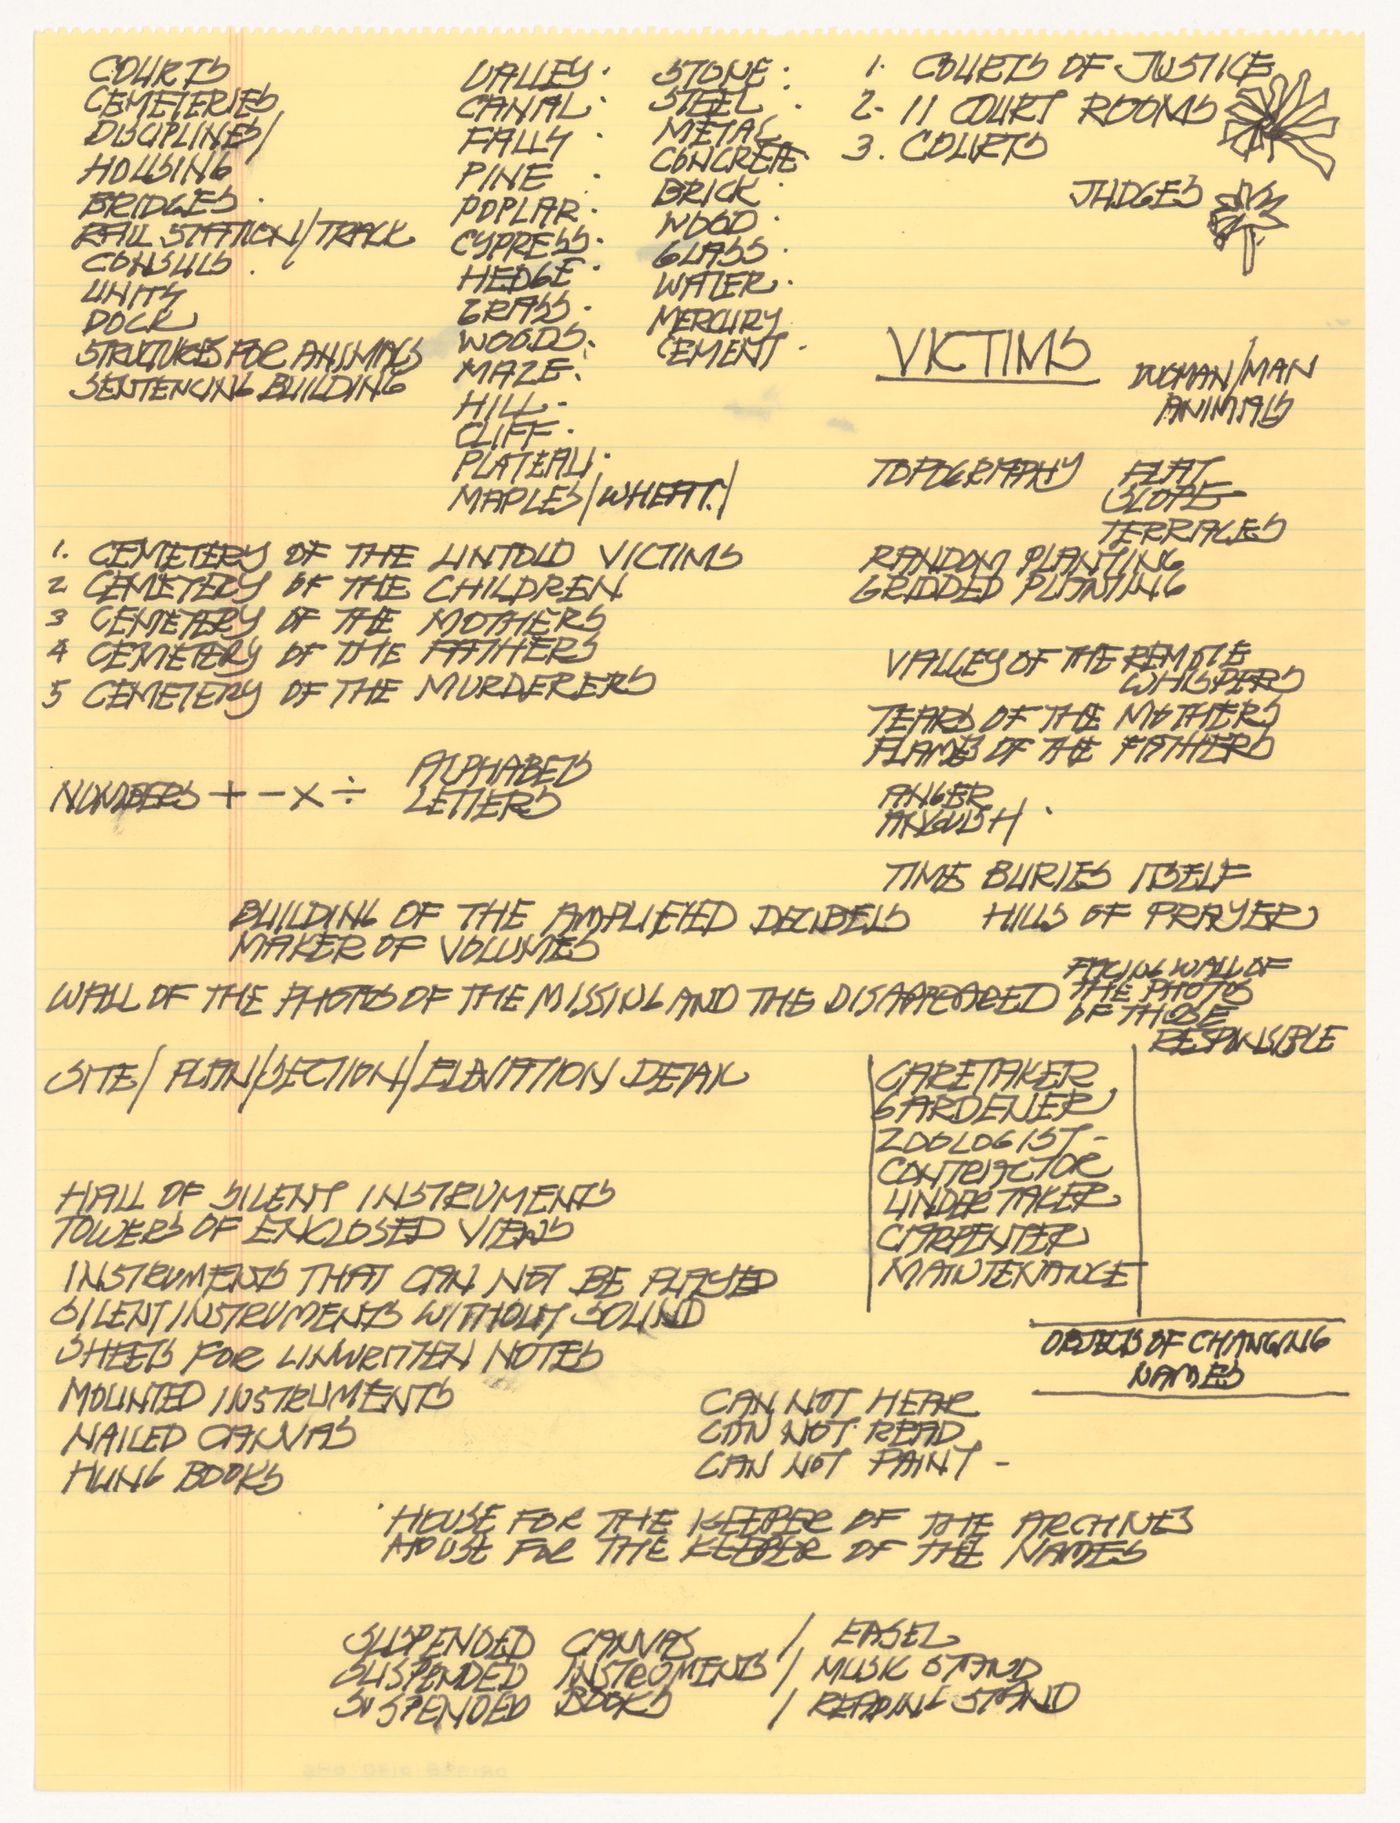 COURTS
CEMETERIES
DISCIPLINES/
HOUSING
BRIDGES.
RAIL STATION/TRACK
CONSULS.
UNITS
DOCK
STRUCTURES FOR ANIMALS
SENTENCING BUILDING
VALLEY.
CANAL.
FALLS.
PINE.
POPLAR.
CYPRESS.
HEDGE.
GRASS.
WOODS.
MAZE.
HILL.
CLIFF.
PLATEAU.
MAPLES/WHEAT./
STONE.
STEEL.
METAL
CONCRETE.
BRICK.
WOOD.
GLASS.
WATER.
MERCURY
CEMENT.
1. COURTS OF JUSTICE
2- 11 COURT ROOMS
3. COURTS
JUDGES
VICTIMS
WOMAN/MAN
ANIMALS
TOPOGRAPHY FLAT
SLOPE
TERRACES
RANDOM PLANTING
GRIDDED PLANTING
1. CEMETERY OF THE UNTOLD VICTIMS
2 CEMETERY OF THE CHILDREN
3 CEMETERY OF THE MOTHERS
4 CEMETERY OF THE FATHERS
5 CEMETERY OF THE MURDERERS
VALLEY OF THE REMOTE
WHISPERS
TEARS OF THE MOTHERS
FLAMES OF THE FATHERS
ANGER
ANGUISH.
NUMBERS + - × ÷
ALPHABETS
LETTERS
TIME BURIES ITSELF
BUILDING OF THE AMPLIFIED DECIBELS
MAKER OF VOLUMES
HILLS OF PRAYER
WALL OF THE PHOTOS OF THE MISSING AND THE DISAPPEARED
FACING WALL OF
THE PHOTOS
OF THOSE
RESPONSIBLE
SITE/ PLAN/SECTION/ELEVATION DETAIL
CARETAKER
GARDENER
ZOOLOGIST -
CONTRACTOR
UNDERTAKER
CARPENTER
MAINTENANCE
HALL OF SILENT INSTRUMENTS
TOWERS OF ENCLOSED VIEWS
INSTRUMENTS THAT CAN NOT BE PLAYED
SILENT INSTRUMENTS WITHOUT SOUND
SHEETS FOR UNWRITTEN NOTES
MOUNTED INSTRUMENTS
NAILED CANVAS
HUNG BOOKS
OBJECTS OF CHANGING
NAMES
CAN NOT HEAR
CAN NOT READ
CAN NOT PAINT -
HOUSE FOR THE KEEPER OF THE ARCHIVES
HOUSE FOR THE KEEPER OF THE NAMES
SUSPENDED CANVAS / EASEL
SUSPENDED INSTRUMENTS / MUSIC STAND
SUSPENDED BOOKS / READING STAND